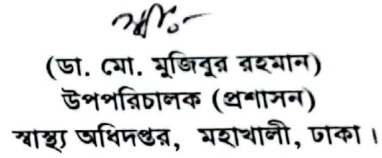 (ডা. মো. মুজিবুর রহমান)
উপপরিচালক (প্রশাসন)
স্বাস্থ্য অধিদপ্তর, মহাখালী, ঢাকা।